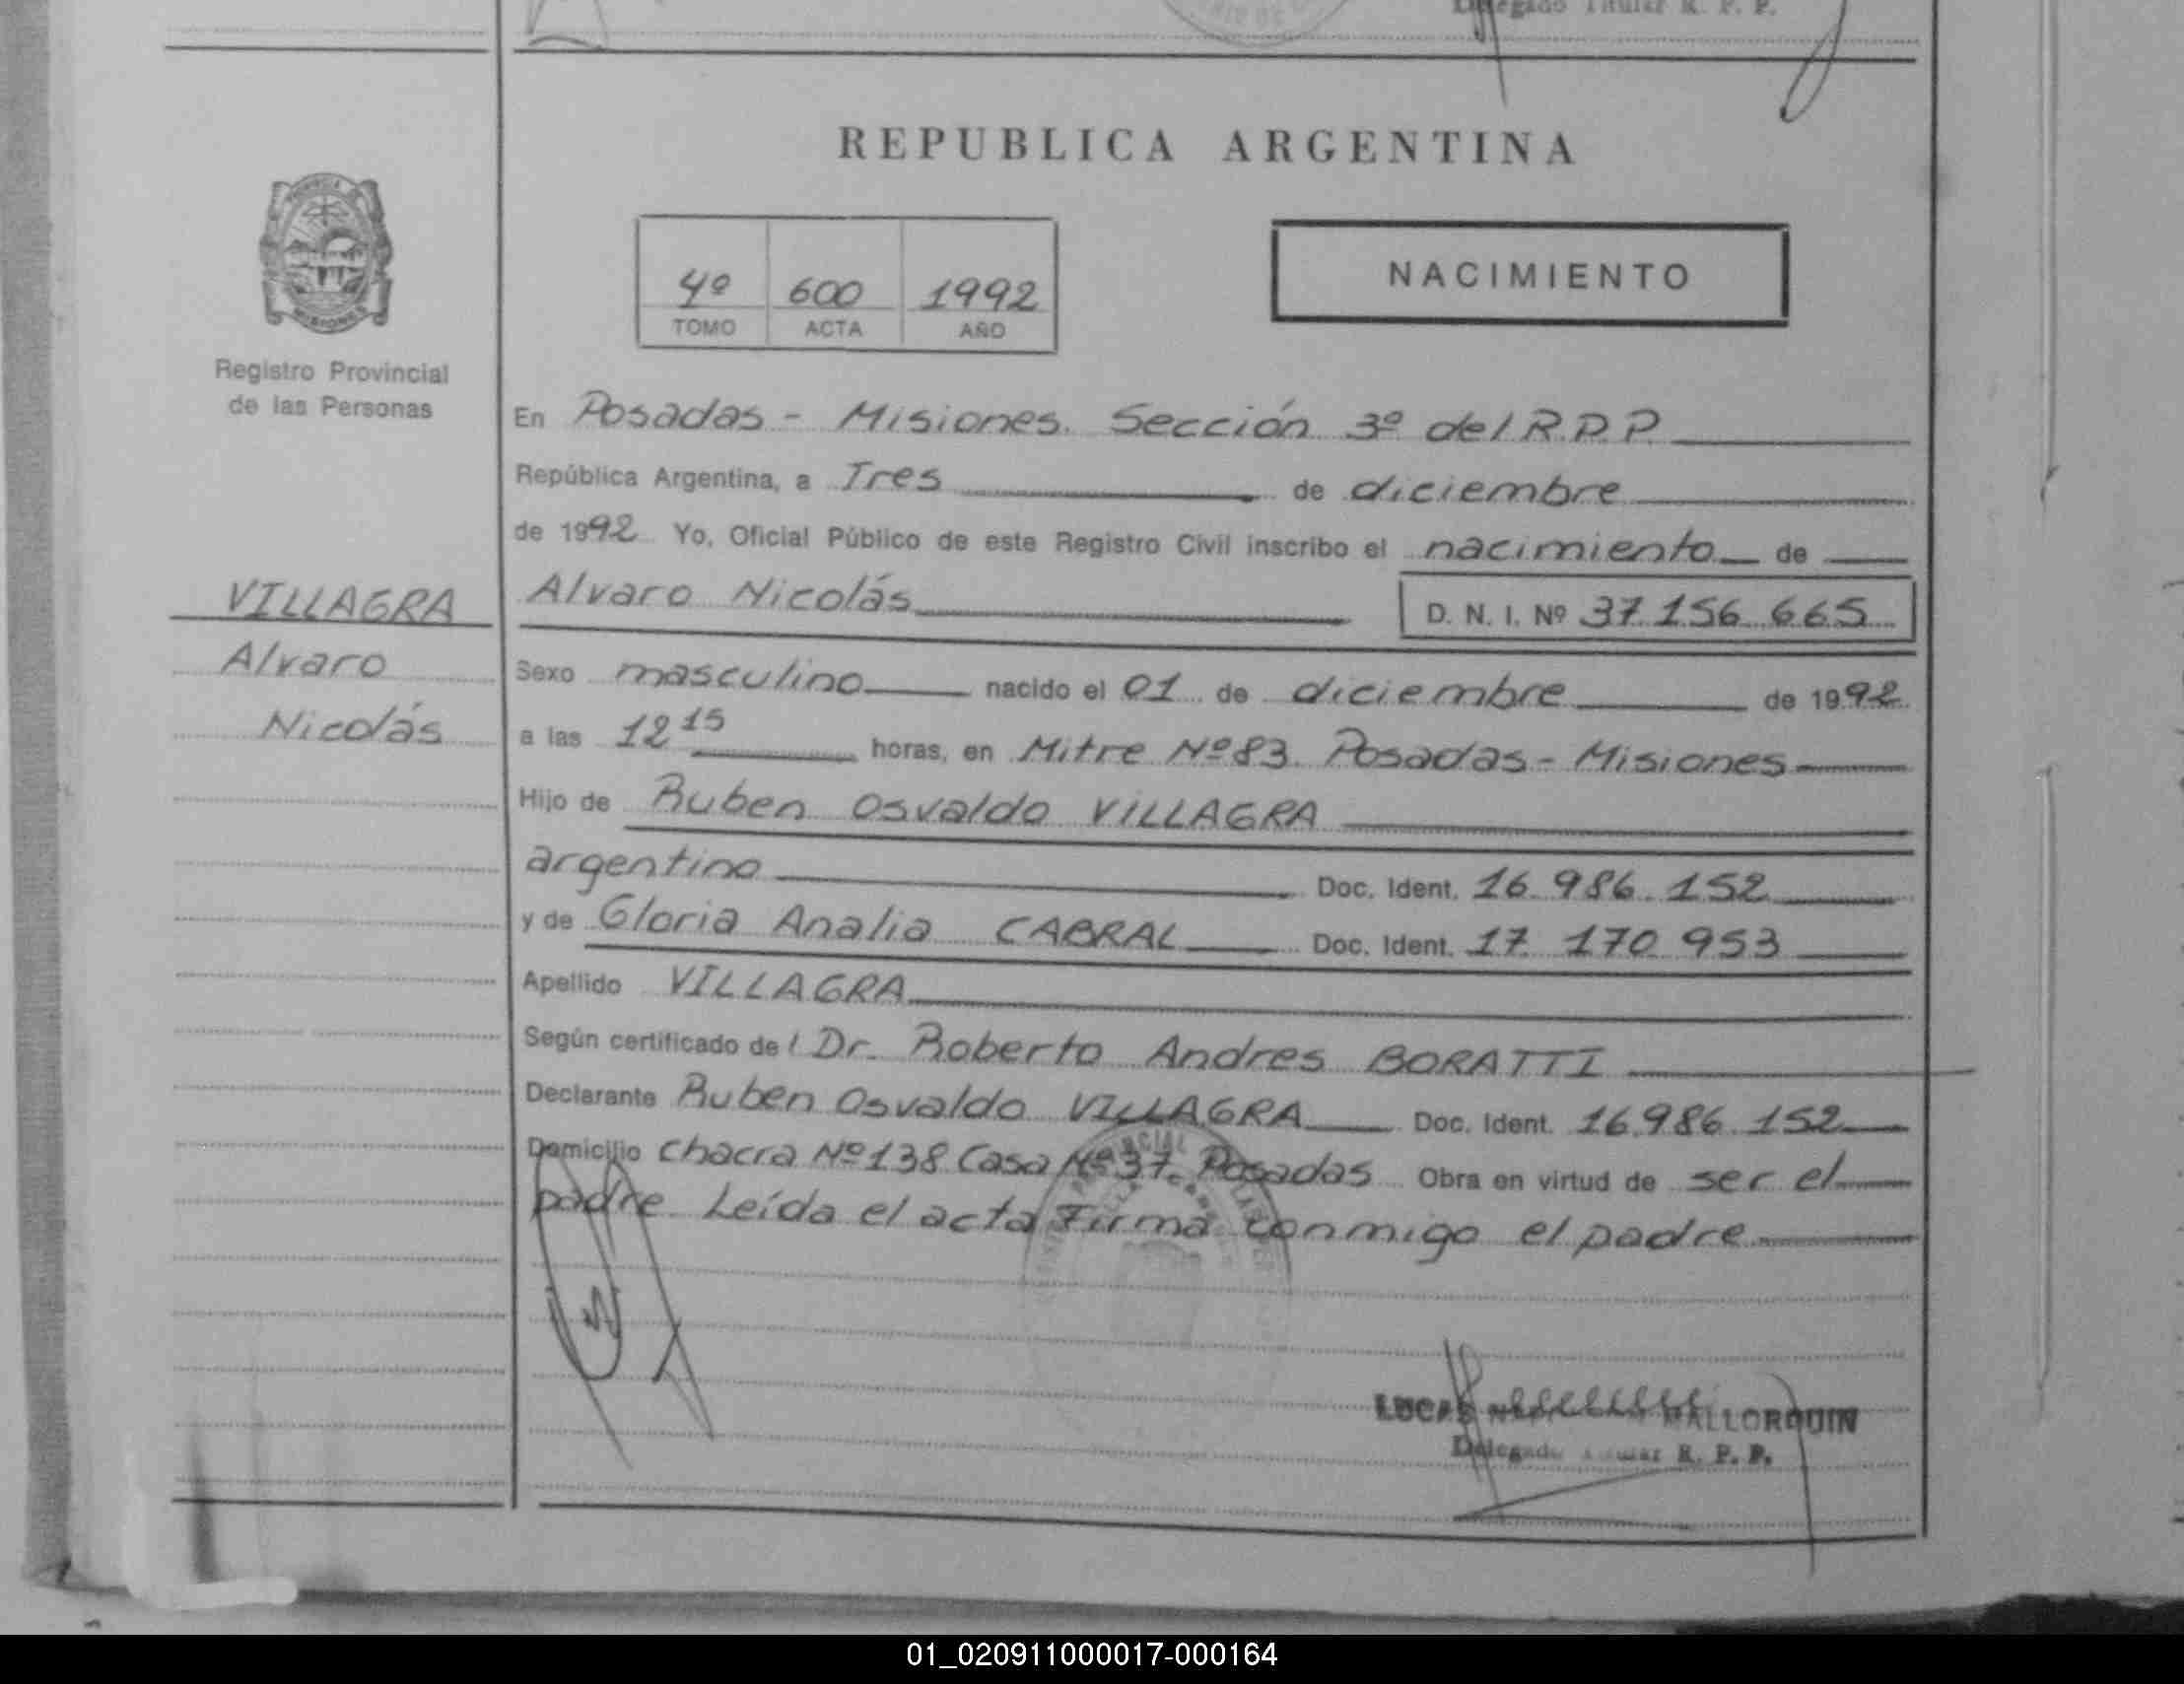 Delegado Titular R. P. P.
REPUBLICA ARGENTINA
MISIONES
Registro Provincial
de las Personas
4º 600 1992
TOMO ACTA AÑO
NACIMIENTO
En Posadas - Misiones. Sección 3º del R.P.P.
República Argentina, a Tres de diciembre
de 1992 Yo, Oficial Público de este Registro Civil inscribo el nacimiento de
VILLAGRA
Alvaro
Nicolás
Alvaro Nicolás D. N. I. Nº 37.156.665
Sexo masculino nacido el 01 de diciembre de 1992
a las 12 15 horas, en Mitre Nº 83. Posadas - Misiones
Hijo de Ruben Osvaldo VILLAGRA
argentino Doc. Ident. 16.986.152
y de Gloria Analia CABRAL Doc. Ident. 17.170.953
Apellido VILLAGRA
Según certificado del Dr. Roberto Andres BORATTI
Declarante Ruben Osvaldo VILLAGRA Doc. Ident. 16.986.152
Domicilio Chacra Nº 138 Casa Nº 37. Posadas Obra en virtud de ser el
padre. Leída el acta firma conmigo el padre
LUCAS MALLORQUIN
Delegado Titular R. P. P.
01_020911000017-000164